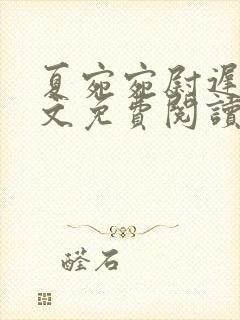 夏宛宛尉遲
文免費閱讀
醛石